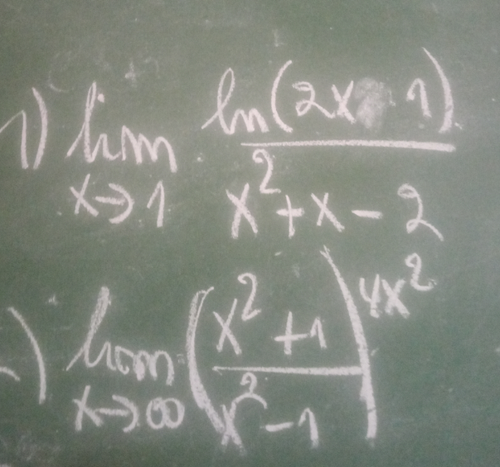 1) lim x→1 ln(2x 1) / x² + x - 2
) lim x→∞ (x² + 1 / x² - 1)^4x²